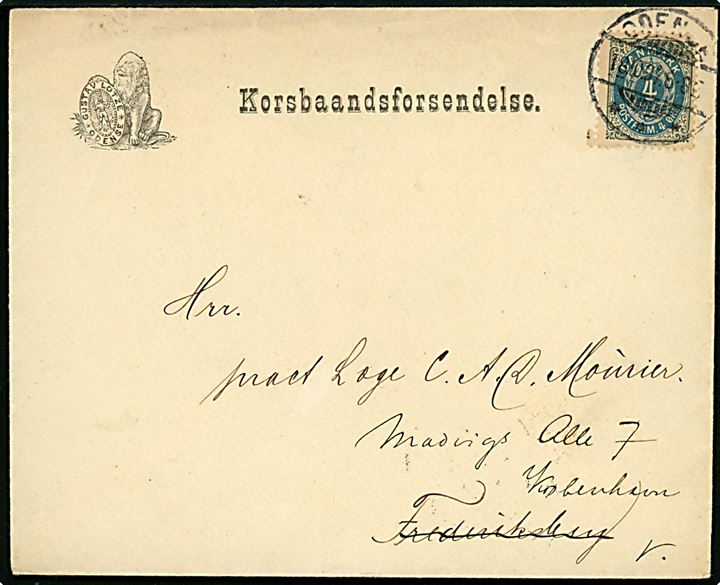 GUSTAV LOTZE
ODENSE
Korsbaandsforsendelse.
ODENSE
DANMARK
4
POSTFRIM. 4 ØRE
Hrr.
pract Læge C. A. D. Mourier.
Madvigs Alle 7
København
Frederiksberg
V.